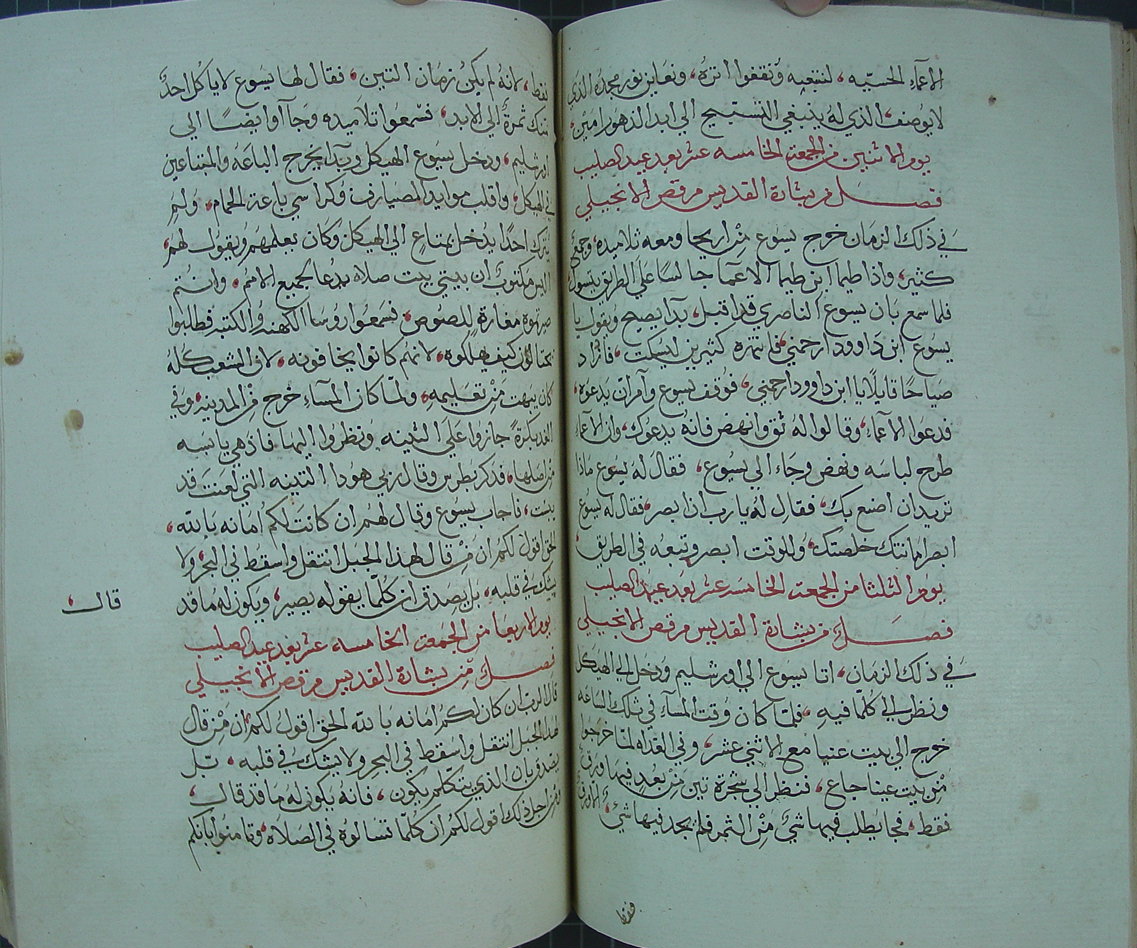 الاعماء الحسيه، لنتبعه ونقفوا اثره، ونعاين نور مجده الذي
لا يوصف، الذي له ينبغي التسبيح الي ابد الدهور امين،
يوم الاثنين من الجمعه الخامسه عشر بعد عيد الصليب
فصل من بشارة القديس مرقص الانجيلي
في ذلك الزمان خرج يسوع من اريحا ومعه تلاميذه، وجمع
كثير، واذا طيما ابن طيما الاعما جالسا علي الطريق يتسول
فلما سمع بان يسوع الناصري قد اقبل، بدا يصيح ويقول يا
يسوع ابن داوود ارحمني، فانتهره كثيرين ليسكت، فازداد
صياحا قايلا يا ابن داوود ارحمني، فوقف يسوع وامر ان يدعوه،
فدعوا الاعما، وقالوا له ثق وانهض فانه يدعوك، وان الاعما
طرح لباسه ونهض وجاء الي يسوع، فقال له يسوع ماذا
تريد ان اصنع بك، فقال له يارب ان ابصر، فقال له يسوع
ابصر امانتك خلصتك، وللوقت ابصر وتبعه في الطريق،
يوم الثلثا من الجمعه الخامسه عشر بعد عيد الصليب
فصل من بشارة القديس مرقص الانجيلي
في ذلك الزمان، اتا يسوع الي اورشليم ودخل الي الهيكل
ونظر الي كلما فيه، فلما كان وقت المساء في تلك الساعه
خرج الي بيت عنيا مع الاثني عشر، وفي الغداه لما خرجوا
من بيت عنيا جاع، فنظر الي شجرة تين من بعد فيها ورق
فقط، فجا يطلب فيها شي من الثمر فلم يجد فيها شي، الا ورق
فقط
فقط، لانه لم يكن زمان التين، فقال لها يسوع لا ياكل احد
منك ثمرة الي الابد، فسمعوا تلاميذه وجاآوا ايضا الي
اورشليم، ودخل يسوع الهيكل وبدا يخرج الباعه والمبتاعين
في الهيكل، واقلب موايد الصيارف وكراسي باعة الحمام، ولم
يترك احدا يدخل بمتاع الي الهيكل وكان يعلمهم ويقول لهم،
اليس مكتوب ان بيتي بيت صلاه يدعا لجميع الامم، وانتم
صيرتموه مغارة للصوص، فسمعوا روسا الكهنه والكتبه فطلبوا
كيف يهلكوه، لانهم كانوا يخافونه، لان الشعب كله
كان يبهت من تعليمه، ولما كان المساء خرج من المدينه، وفي
الغد بكرة جازوا علي التينه ونظروا اليها فاذ هي يابسه
من اصلها، فذكر بطرس وقال ربي هوذا التينه التي لعنت قد
يبست، فاجاب يسوع وقال لهم ان كانت لكم امانه بالله،
الحق اقول لكم ان من قال لهذا الجبل انتقل واسقط في البحر ولا
يشك في قلبه، بل يصدق ان كلما يقوله يصير، ويكون له ما قد
قال
يوم الاربعا من الجمعه الخامسه عشر بعد عيد الصليب
فصل من بشارة القديس مرقص الانجيلي
قال الرب ان كان لكم امانه بالله الحق اقول لكم ان من قال
لهذا الجبل انتقل واسقط في البحر ولا يشك في قلبه، بل
يصدق بان الذي يتكلم يكون، فانه يكون له ما قد قال،
من اجل ذلك اقول لكم ان كلما تسالوه في الصلاه، وتامنوا بانكم